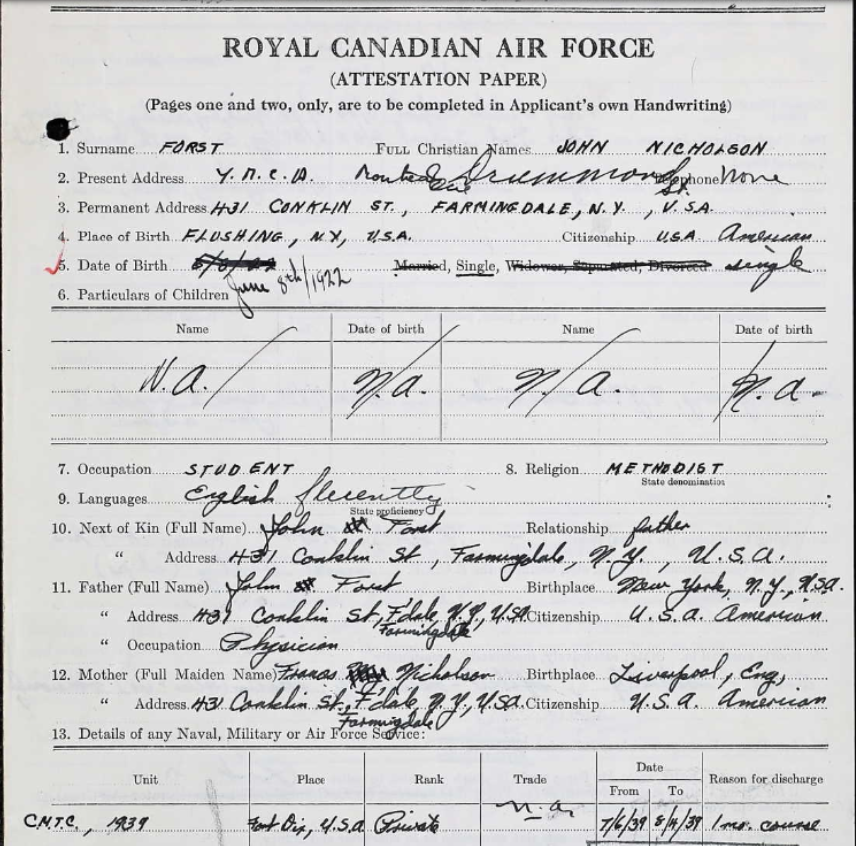 ROYAL CANADIAN AIR FORCE
(ATTESTATION PAPER)
(Pages one and two, only, are to be completed in Applicant's own Handwriting)
1. Surname FORST Full Christian Names JOHN NICHOLSON
2. Present Address Y.M.C.A. Montreal Que Drummond St. Telephone None
3. Permanent Address 431 CONKLIN ST., FARMINGDALE, N.Y., U.S.A.
4. Place of Birth FLUSHING, N.Y., U.S.A. Citizenship U.S.A American
5. Date of Birth June 8th/1922 Married, Single, Widower, Separated, Divorced single
6. Particulars of Children
Name Date of birth Name Date of birth
N.A. N.A. N/A. N.A.
7. Occupation STUDENT 8. Religion METHODIST
State denomination
9. Languages English fluently
State proficiency
10. Next of Kin (Full Name) John Forst Relationship father
" Address 431 Conklin St, Farmingdale, N.Y., U.S.A.
11. Father (Full Name) John Forst Birthplace New York, N.Y., U.S.A.
" Address 431 Conklin St, F'dale, N.Y., U.S.A. Citizenship U.S.A. American
Farmingdale
" Occupation Physician
12. Mother (Full Maiden Name) Francis Nicholson Birthplace Liverpool, Eng,
" Address 431 Conklin St., F'dale, N.Y., U.S.A. Citizenship U.S.A. American
Farmingdale
13. Details of any Naval, Military or Air Force Service:
Unit Place Rank Trade Date Reason for discharge
From To
C.M.T.C., 1939 Fort Dix, U.S.A Private n.a. 7/6/39 8/4/39 1 mo. course